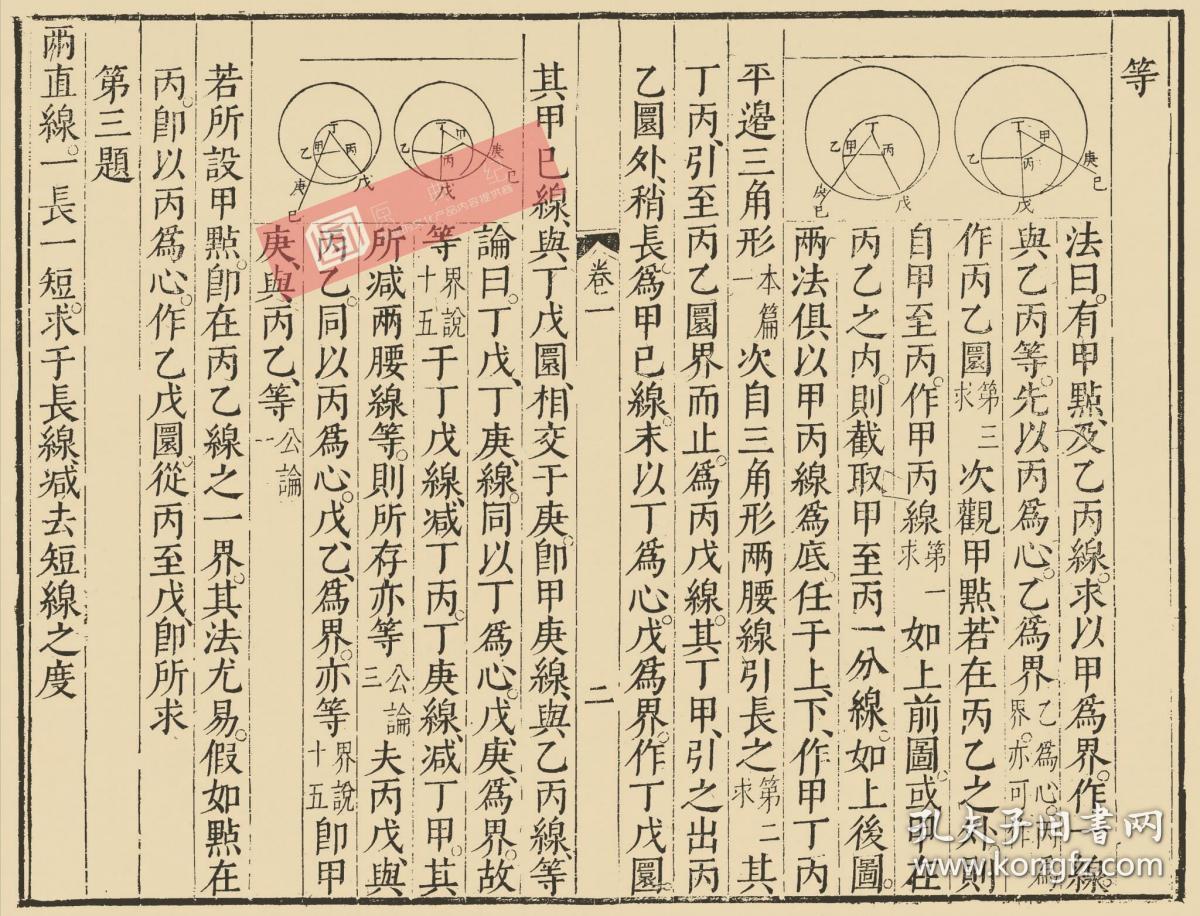 等
法曰。有甲點、及乙丙線。求以甲爲界。作一線。
與乙丙等。先以丙爲心。乙爲界乙爲心。丙爲界。亦可作
作丙乙圜第三求次觀甲點、若在丙乙之外、則
自甲至丙。作甲丙線第一求如上前圖。或甲在
丙乙之內、則截取甲至丙一分線。如上後圖。
兩法俱以甲丙線爲底。任于上、下、作甲丁丙
平邊三角形本篇一次自三角形兩腰線引長之第二求其
丁丙、引至丙乙圜界而止。爲丙戊線。其丁甲、引之出丙
乙圜外、稍長。爲甲已線。末以丁爲心。戊爲界。作丁戊圜。
卷一
二
其甲已線、與丁戊圜、相交于庚。卽甲庚線、與乙丙線、等
論曰。丁戊、丁庚、線。同以丁爲心。戊、庚、爲界。故
等界說十五于丁戊線、減丁丙。丁庚線、減丁甲。其
所減兩腰線等。則所存亦等公論三夫丙戊、與
丙乙。同以丙爲心。戊、乙、爲界。亦等界說十五卽甲
庚、與丙乙、等公論一
若所設甲點。卽在丙乙線之一界。其法尤易。假如點在
丙。卽以丙爲心。作乙戊圜。從丙至戊、卽所求
第三題
兩直線。一長一短。求于長線減去短線之度
丁
甲
乙
丙
庚
已
戊
丁
乙
甲
丙
庚
已
戊
丁
甲
乙
丙
庚
已
戊
丁
乙
甲
丙
戊
庚
已
孔夫子旧书网
www.kongfz.com